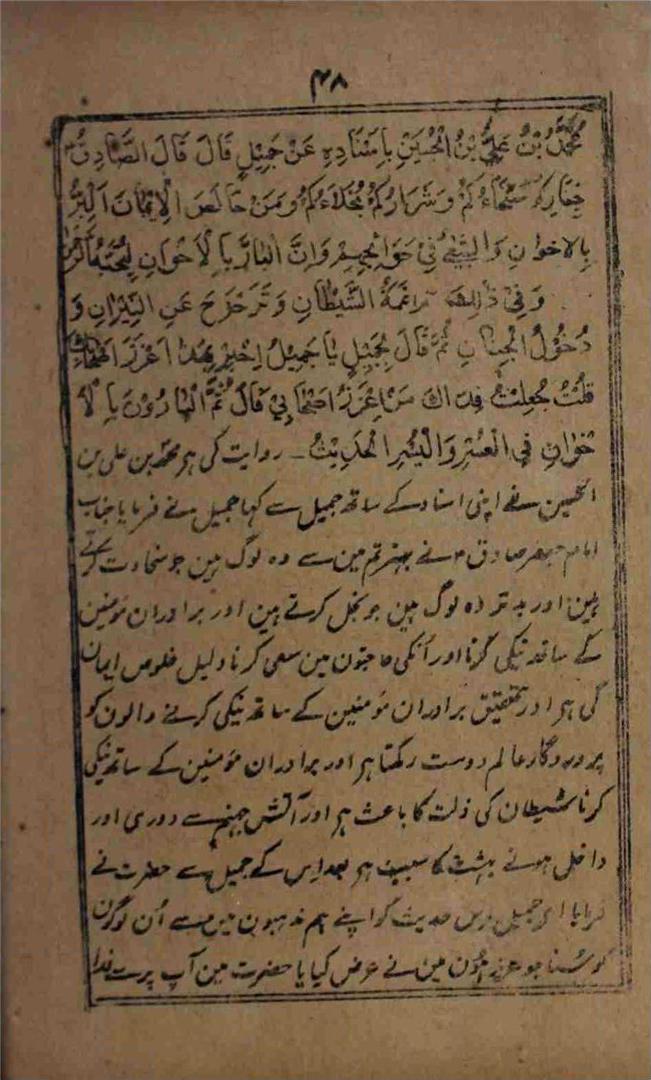 ۴۸
مُحَمَّدُ بْنُ عَلِيِّ بْنِ الْحُسَيْنِ بِاِسْنَادِهٖ عَنْ جَمِيْلٍ قَالَ قَالَ الصَّادِقُ
خِيَارُكُمْ سُمَحَاءُكُمْ وَشِرَارُكُمْ بُخَلَاءُكُمْ وَمِنْ خَالِصِ الْاِيْمَانِ اَلْبِرُّ
بِالْاِخْوَانِ وَالسَّعْيُ فِيْ حَوَائِجِهِمْ وَاِنَّ الْبَارَّ بِالْاِخْوَانِ لَيُحِبُّهُ الرَّحْمٰنُ
وَفِيْ ذٰلِكَ مَرْغَمَةُ الشَّيْطَانِ وَتَزَحْزُحٌ عَنِ النِّيْرَانِ وَ
دُخُوْلُ الْجِنَانِ ثُمَّ قَالَ لِجَمِيْلٍ يَا جَمِيْلُ اَخْبِرْ بِهٰذَا اَغْرَرَ اَصْحَابِكَ
قُلْتُ جُعِلْتُ فِدَاكَ مَنْ اَغْرَرُ اَصْحَابِيْ قَالَ ثُمَّ الْبَارُّوْنَ بِالْاِ
خْوَانِ فِي الْعُسْرِ وَالْيُسْرِ الْحَدِيْثُ ۔ روایت کی ہر محمد بن علی بن
الحسین نے اپنی اسناد کے ساتھ جمیل سے کہا جمیل نے فرمایا جناب
امام جعفر صادق ع نے بہتر تم مین سے وہ لوگ ہین جو سخاوت کرتے
ہین اور بدتر وہ لوگ ہین جو بخل کرتے ہین اور برادران مؤمنین
کے ساتھ نیکی کرنا اور اُنکی حاجتون مین سعی کرنا دلیل خلوص ایمان
کی ہر اور تحقیق برادران مؤمنین کے ساتھ نیکی کرنے والون کو
پروردگار عالم دوست رکھتا ہر اور برادران مؤمنین کے ساتھ نیکی
کرنا شیطان کی ذلت کا باعث ہر اور آتش جہنم سے دوری اور
داخل ہونے بہشت کا سبب ہر بعد اس کے جمیل سے حضرت نے
فرمایا ای جمیل اس حدیث کو اپنے ہم مذہبون مین سے اُن لوگون
کو سُنا جو عزیز ہون مین نے عرض کیا یا حضرت مین آپ پر سے فدا